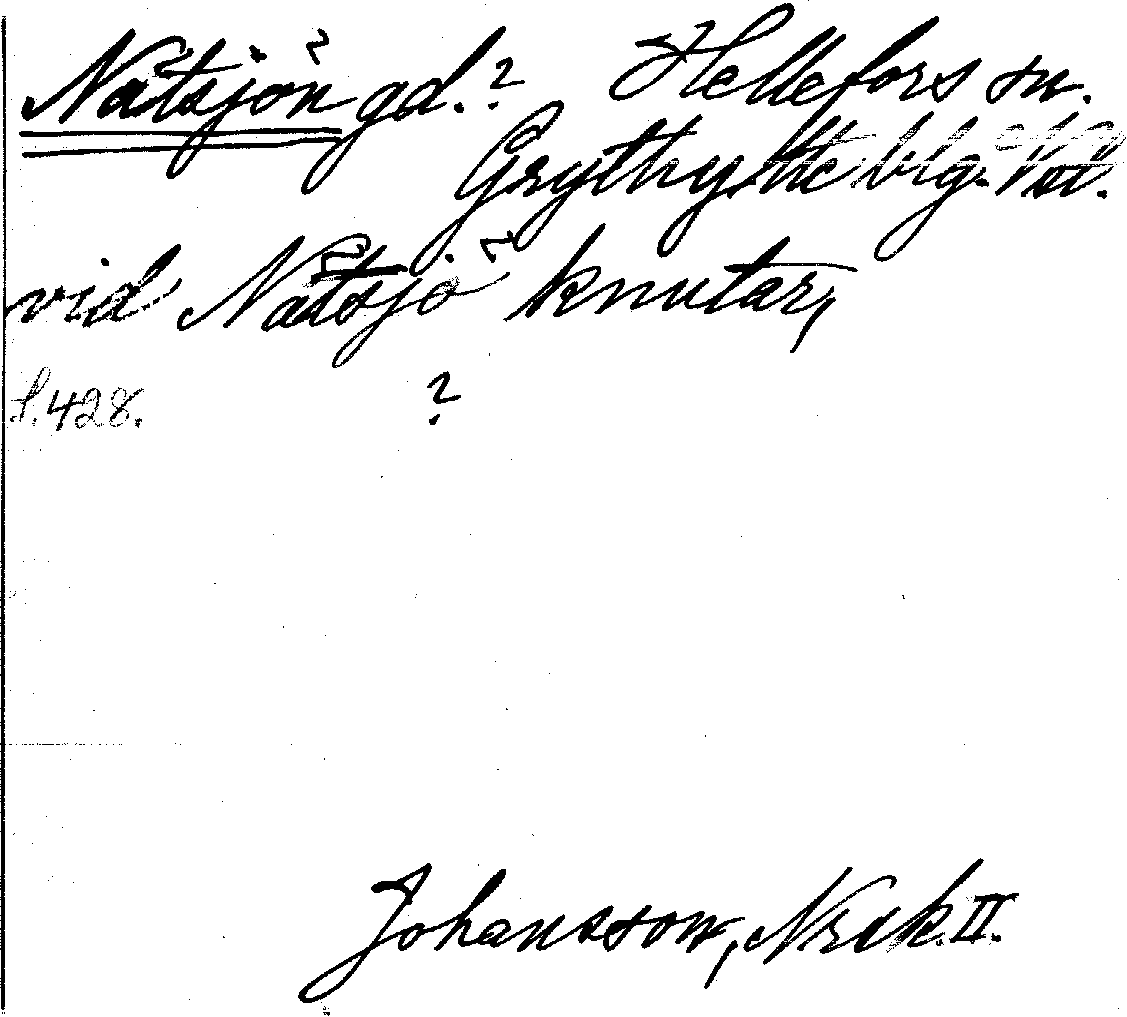 Nätsjön? gd.? Hellefors sn.
Grythytte blg. Vstl.
vid Nätsjö? knutar,
s. 428. ?
Johansson, Nrik. II.